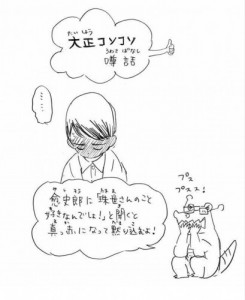 たいしょう
大正コソコソ
うわさ ばなし
噂話
……
愈史郎に珠世さんのこと
好きなんでは！と聞くと
真っ赤になって黙り込むよ！
プス
プスス！